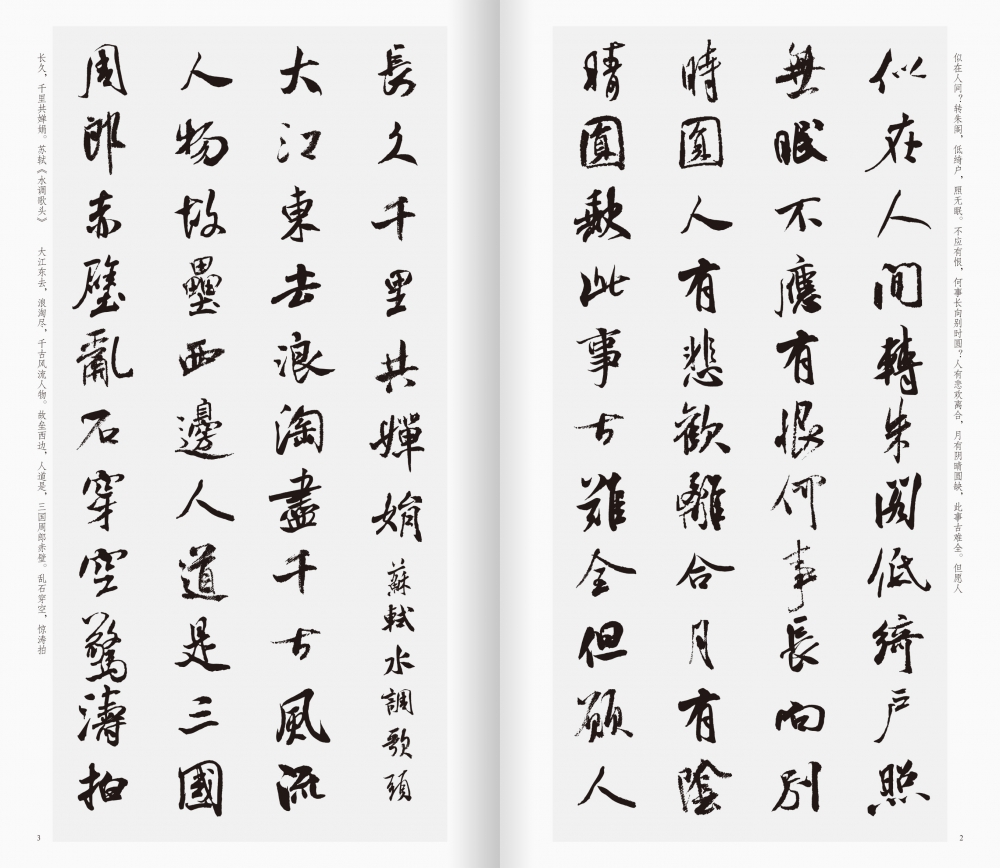 似在人间？转朱阁，低绮户，照无眠。不应有恨，何事长向别时圆？人有悲欢离合，月有阴晴圆缺，此事古难全。但愿人
似在人間轉朱閣低綺戶照
無眠不應有恨何事長向別
時圓人有悲歡離合月有陰
晴圓缺此事古難全但願人
2
長久千里共嬋娟 蘇軾水調歌頭
大江東去浪淘盡千古風流
人物故壘西邊人道是三國
周郎赤壁亂石穿空驚濤拍
长久，千里共婵娟。苏轼《水调歌头》 大江东去，浪淘尽，千古风流人物。故垒西边，人道是，三国周郎赤壁。乱石穿空，惊涛拍
3